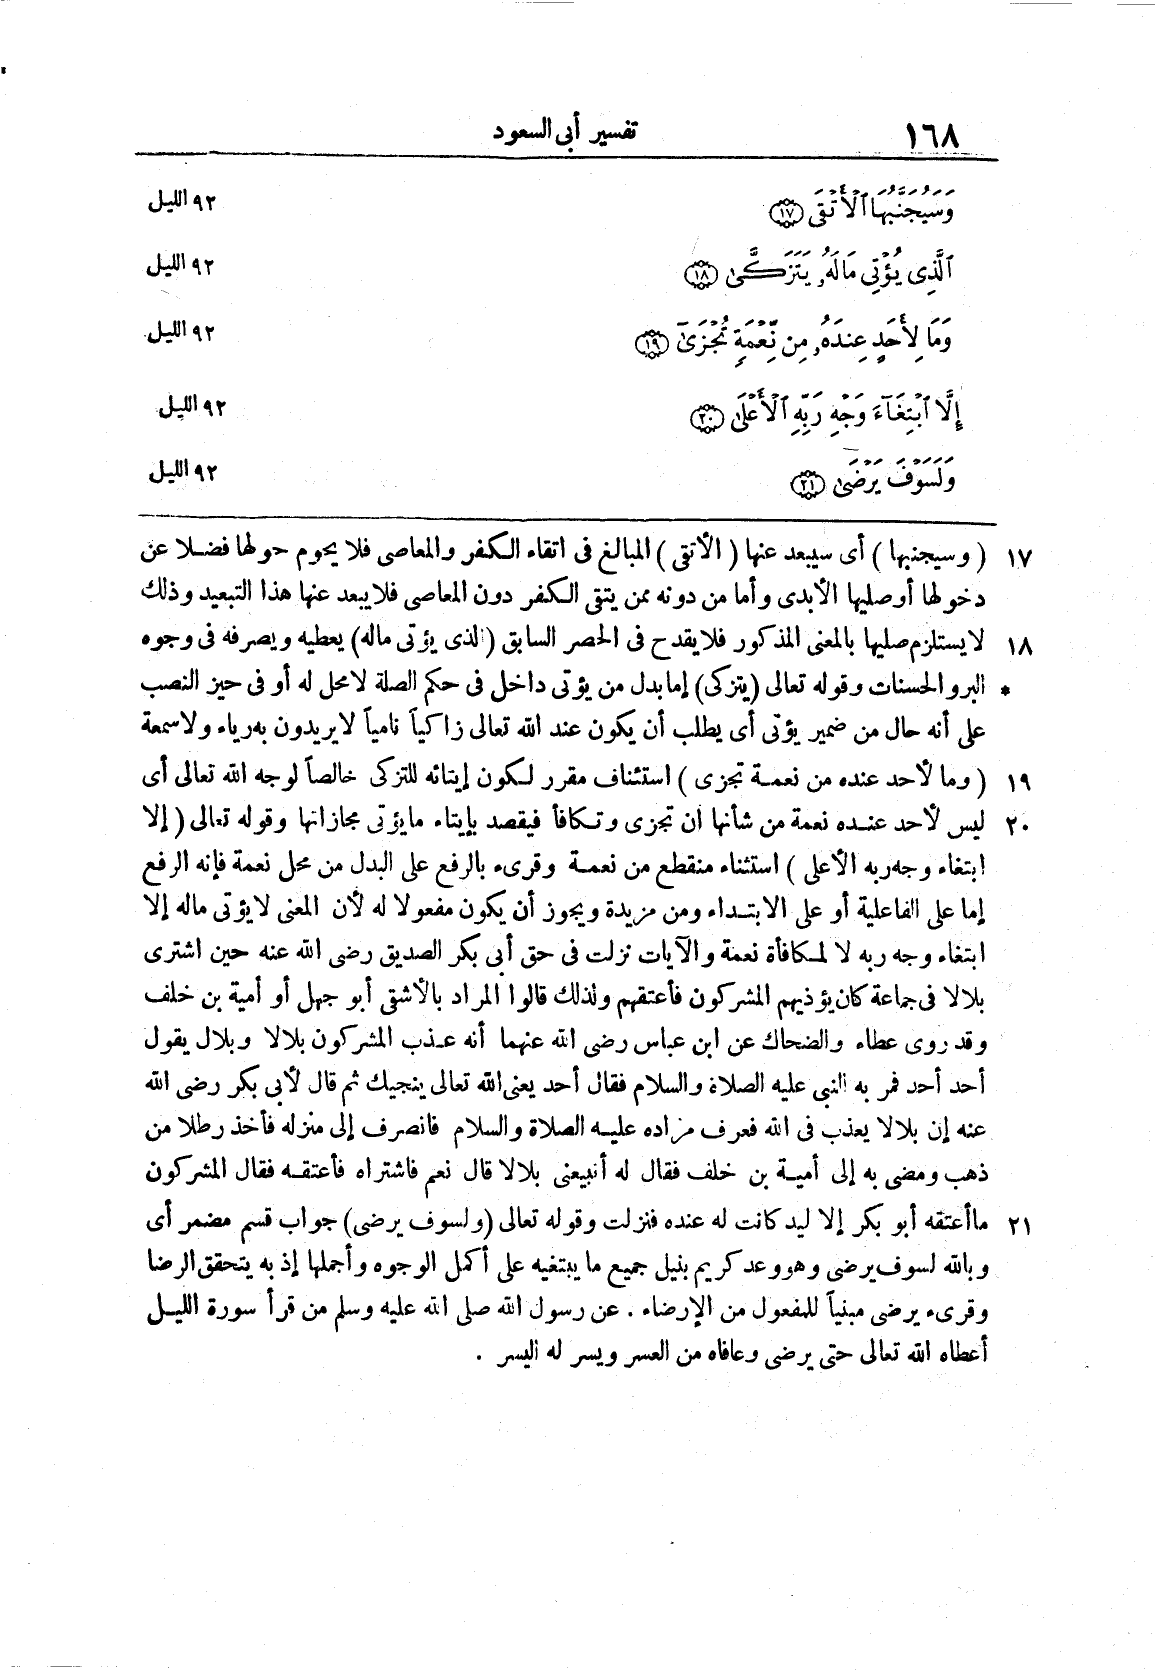 ١٦٨ تفسير أبى السعود
وَسَيُجَنَّبُهَا ٱلْأَتْقَى ﴿١٧﴾ ٩٢ الليل
ٱلَّذِى يُؤْتِى مَالَهُۥ يَتَزَكَّىٰ ﴿١٨﴾ ٩٢ الليل
وَمَا لِأَحَدٍ عِندَهُۥ مِن نِّعْمَةٍ تُجْزَىٰٓ ﴿١٩﴾ ٩٢ الليل
إِلَّا ٱبْتِغَآءَ وَجْهِ رَبِّهِ ٱلْأَعْلَىٰ ﴿٢٠﴾ ٩٢ الليل
وَلَسَوْفَ يَرْضَىٰ ﴿٢١﴾ ٩٢ الليل
١٧ ( وسيجنبها ) أى سيبعد عنها ( الأتقى ) المبالغ فى اتقاء الكفر والمعاصى فلا يحوم حولها فضلا عن
دخولها أو صليها الأبدى وأما من دونه ممن يتقى الكفر دون المعاصى فلا يبعد عنها هذا التبعيد وذلك
١٨ لا يستلزم صليها بالمعنى المذكور فلا يقدح فى الحصر السابق (الذى يؤتى ماله) يعطيه ويصرفه فى وجوه
* البر والحسنات وقوله تعالى (يتزكى) إما بدل من يؤتى داخل فى حكم الصلة لا محل له أو فى حيز النصب
على أنه حال من ضمير يؤتى أى يطلب أن يكون عند الله تعالى زاكياً نامياً لا يريدون به رياء ولا سمعة
١٩ ( وما لأحد عنده من نعمة تجزى ) استئناف مقرر لكون إيتائه للتزكى خالصاً لوجه الله تعالى أى
٢٠ ليس لأحد عنده نعمة من شأنها أن تجزى وتكافأ فيقصد بإيتاء ما يؤتى مجازاتها وقوله تعالى ( إلا
ابتغاء وجه ربه الأعلى ) استثناء منقطع من نعمة وقرىء بالرفع على البدل من محل نعمة فإنه الرفع
إما على الفاعلية أو على الابتداء ومن مزيدة ويجوز أن يكون مفعولا له لأن المعنى لا يؤتى ماله إلا
ابتغاء وجه ربه لا لمكافأة نعمة والآيات نزلت فى حق أبى بكر الصديق رضى الله عنه حين اشترى
بلالا فى جماعة كان يؤذيهم المشركون فأعتقهم ولذلك قالوا المراد بالأشقى أبو جهل أو أمية بن خلف
وقد روى عطاء والضحاك عن ابن عباس رضى الله عنهما أنه عذب المشركون بلالا وبلال يقول
أحد أحد فمر به النبى عليه الصلاة والسلام فقال أحد يعنى الله تعالى ينجيك ثم قال لأبى بكر رضى الله
عنه إن بلالا يعذب فى الله فعرف مراده عليه الصلاة والسلام فانصرف إلى منزله فأخذ رطلا من
ذهب ومضى به إلى أمية بن خلف فقال له أتبيعنى بلالا قال نعم فاشتراه فأعتقه فقال المشركون
٢١ ما أعتقه أبو بكر إلا ليد كانت له عنده فنزلت وقوله تعالى (ولسوف يرضى) جواب قسم مضمر أى
وبالله لسوف يرضى وهو وعد كريم بنيل جميع ما يبتغيه على أكمل الوجوه وأجملها إذ به يتحقق الرضا
وقرىء يرضى مبنياً للمفعول من الإرضاء . عن رسول الله صلى الله عليه وسلم من قرأ سورة الليل
أعطاه الله تعالى حتى يرضى وعافاه من العسر ويسر له اليسر .